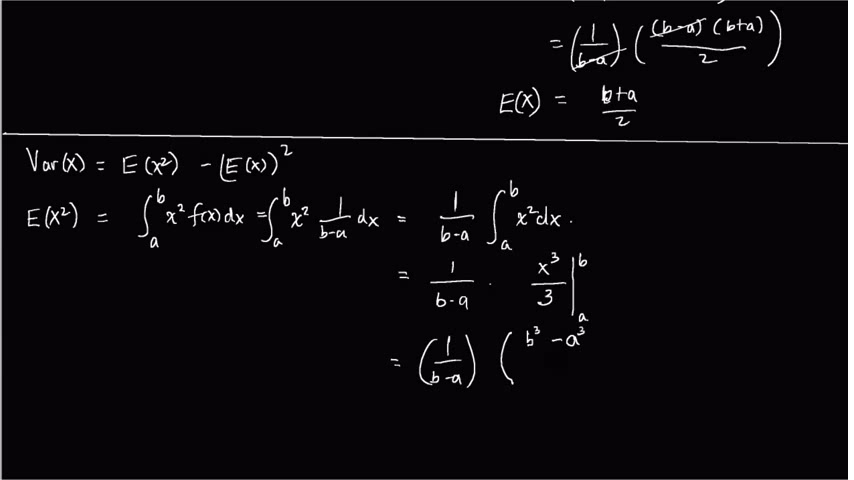 = (1/(b-a)) ((b-a)(b+a)/2)
E(X) = (b+a)/2
Var(X) = E(X²) - (E(X))²
E(X²) = ∫ₐᵇ x² f(x) dx = ∫ₐᵇ x² 1/(b-a) dx = 1/(b-a) ∫ₐᵇ x² dx.
= 1/(b-a) · x³/3 |ₐᵇ
= (1/(b-a)) (b³ - a³